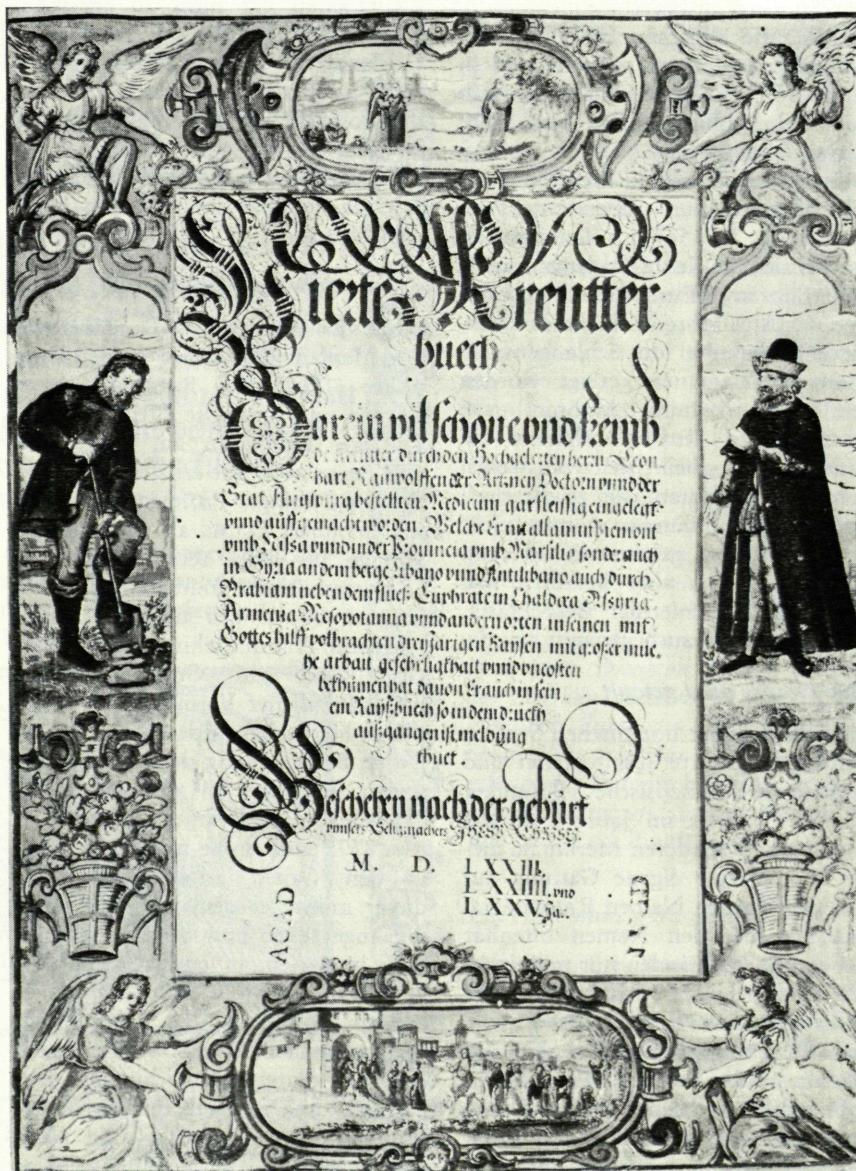 Vierte Kreutter
buech
Darein vil schöne vnd frembde
de Kreutter durch den Hochgelerten herrn Leon
hart Rauwolffen der Artzney Doctorn vnnd der
Stat Augspurg bestellten Medicum gar fleissig eingelegt
vnnd auffgemacht worden. Welche Er nit allain in Piemont
vmb Nissa vnnd in der Prouincia vmb Marsilio sonder auch
in Syria an dem berge Libano vnnd Antilibano auch durch
Arabiam neben dem flues Euphrate in Chaldæa Assyria
Armenia Mesopotamia vnnd andern orten in seinen mit
Gottes hilff volbrachten dreyjarigen Raysen mit groser mue,
he arbait gefehrlighait vnnd vncosten
bekhumen hat dauon Er auch in sein
em Rayßbuech so in dem druckh
außgangen ist meldung
thuet.
Beschehen nach der geburt
vnnsers Seligmachers JHESV CHRISTJ
M. D. LXXIII.
LXXIIII. vnd
LXXV. Jar.